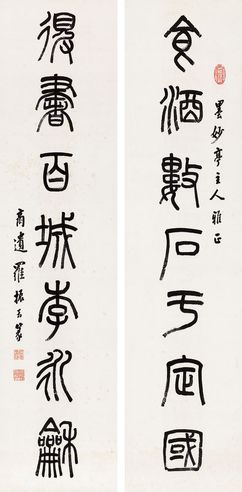 食酒數石于定國
墨妙亭主人雅正
得書百城李永龢
商遺羅振玉篆